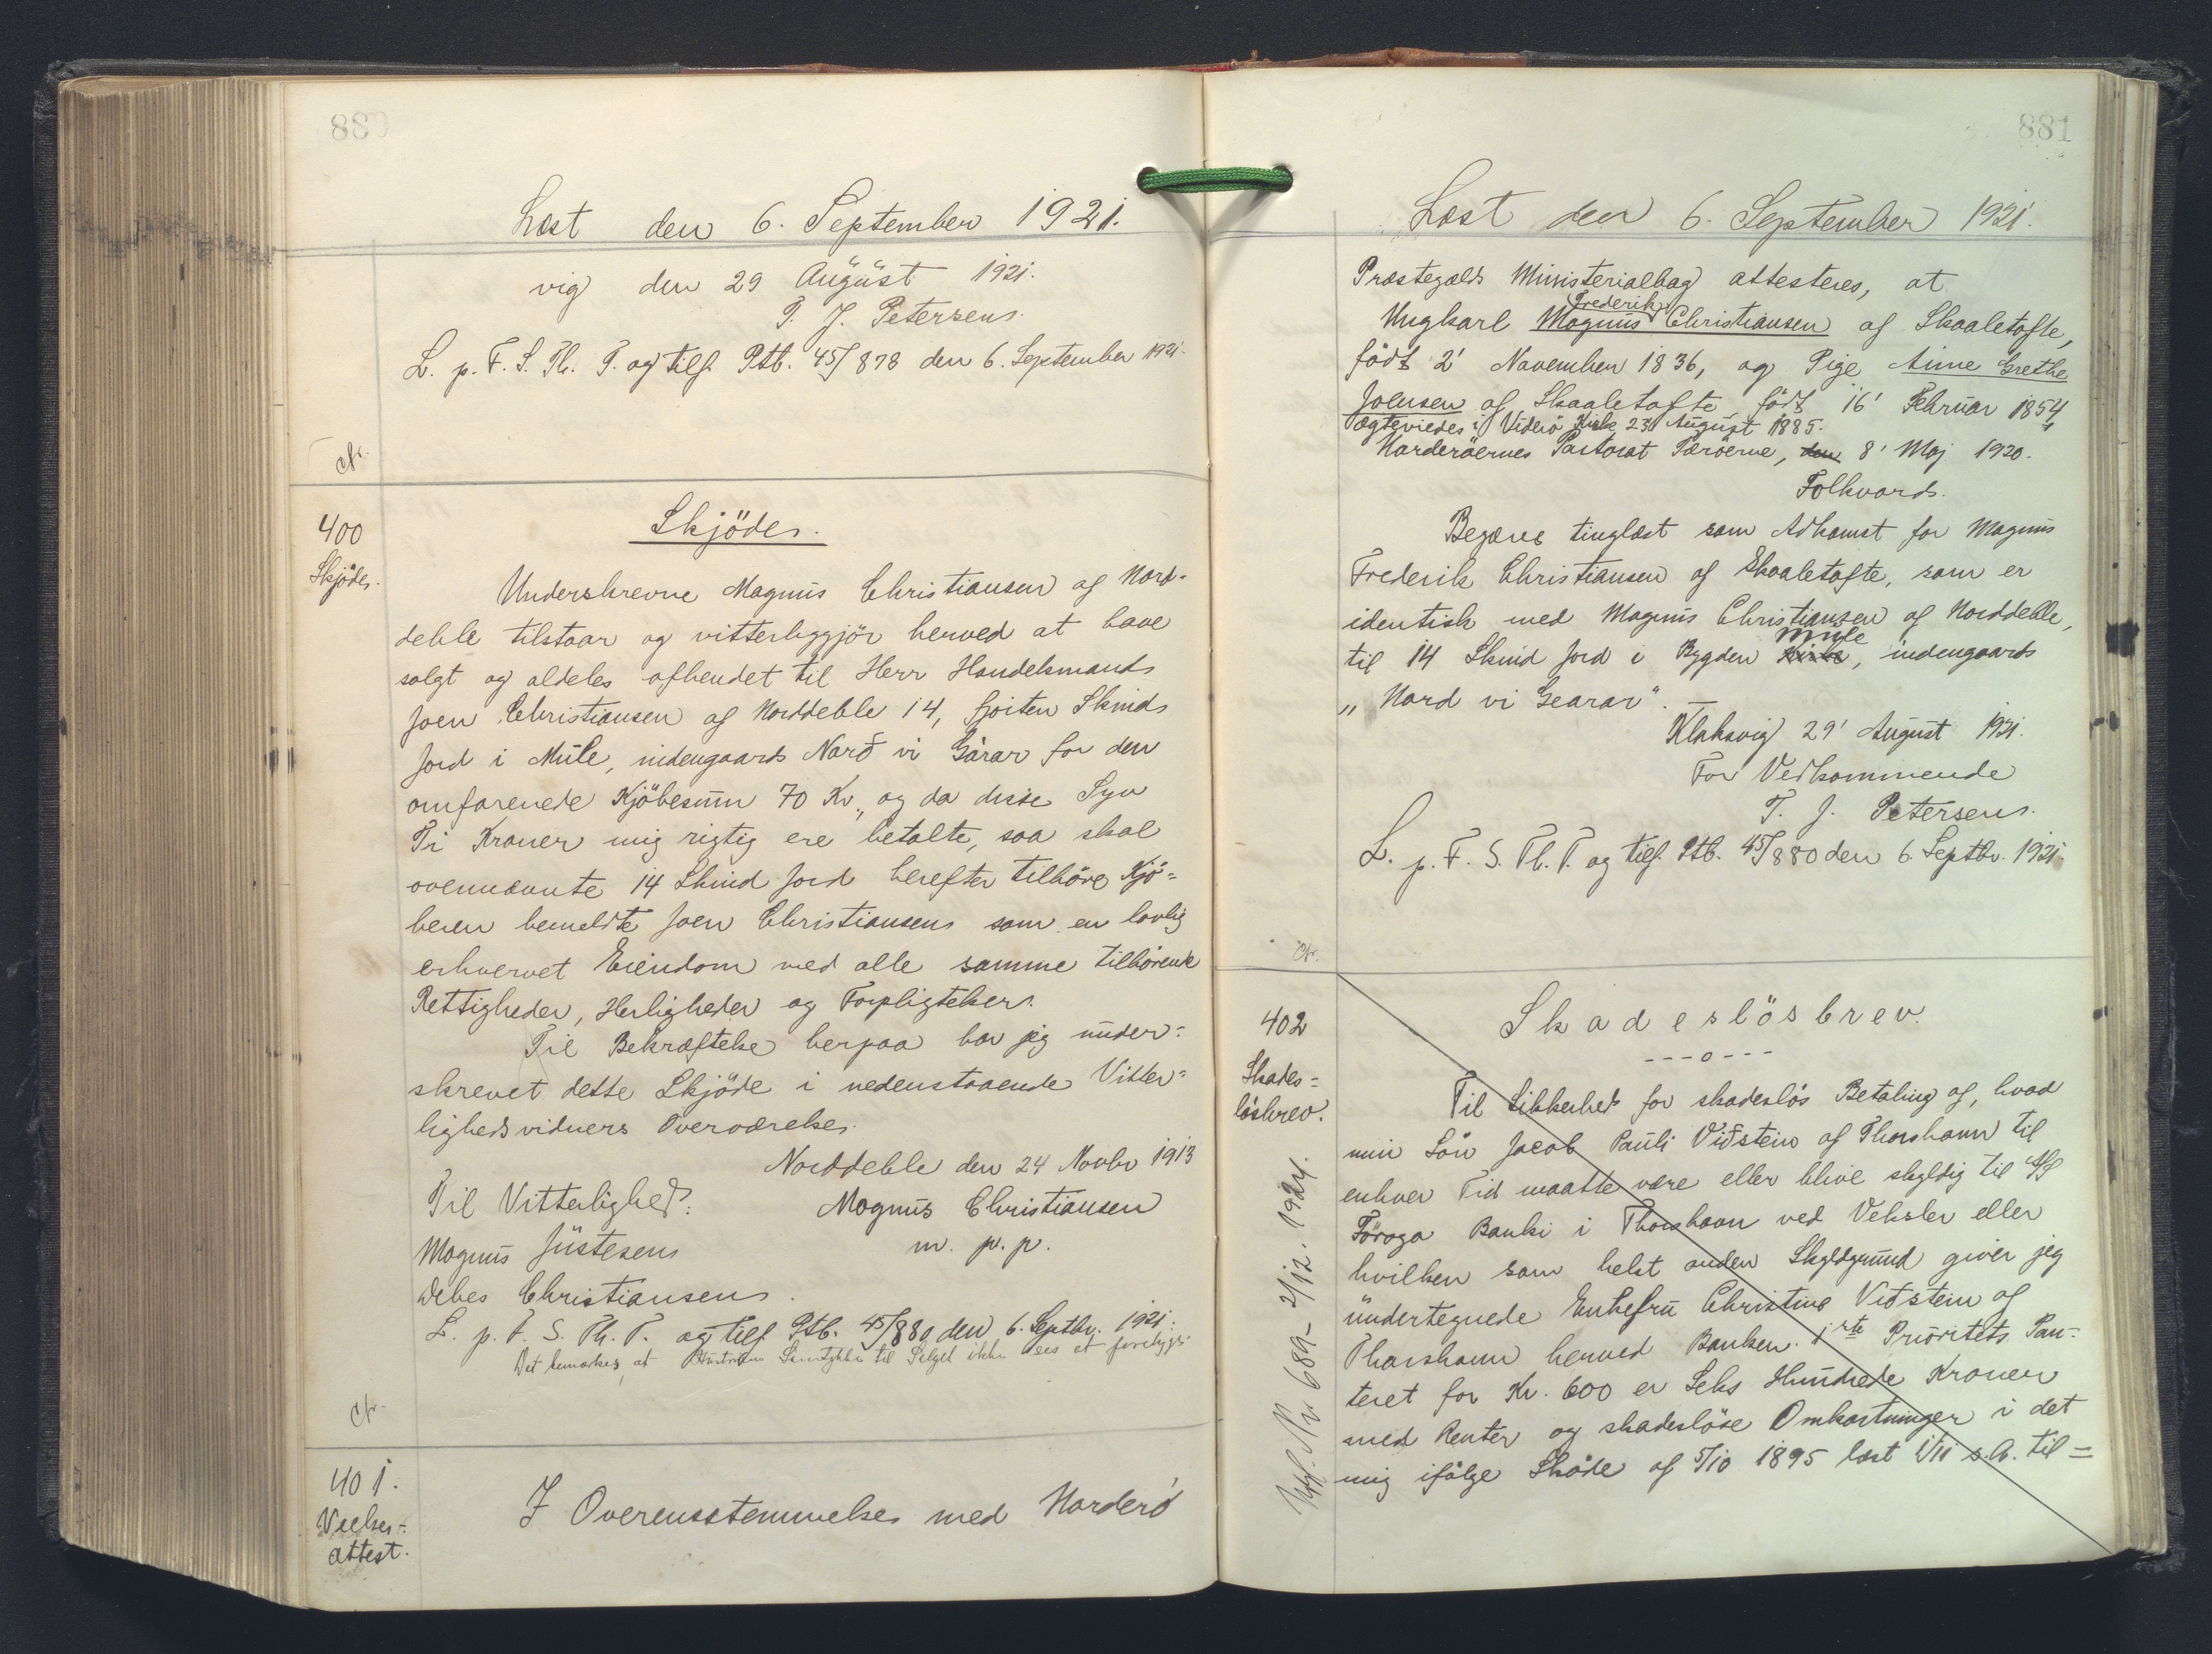 880
Læst den 6. September 1921.
vig den 29 August 1921.
T. J. Petersen.
L. p. F. S. Th. T. og tilf. Ptb. 45/878 den 6. September 1921.
Cr.
400
Skjöde.
Skjöde.
Underskrevne Magnus Christiansen af Nord-
deble tilstaar og vitterliggjör herved at have
solgt og aldeles afhendet til Herr Handelsmand
Joen Christiansen af Norddeble 14, fjorten Skind
Jord i Mule, indengaards Norð vi Gárar for den
omforenede Kjöbesum 70 Kr., og da disse Syv
Ti Kroner mig rigtig ere betalte, saa skal
ovennævnte 14 Skind Jord herefter tilhöre Kjö=
beren bemeldte Joen Christiansen som en lovlig
erhvervet Eiendom med alle samme tilhörende
Rettigheder, Herligheder og Forpligtelser.
Til Bekræftelse herpaa har jeg under=
skrevet dette Skjöde i nedenstaaende Vitter=
lighedsvidners Overværelse.
Norddeble den 24 Novbr 1913
Til Vitterlighed: Magnus Christiansen
Magnus Justesen m. p. p.
Debes Christiansen.
L. p. F. S. Th. T. og tilf Ptb. 45/880 den 6. Septbr. 1921.
Det bemærkes, at Hustruens Samtykke til Salget ikke ses at foreligge
Cr.
401.
Vielses=
attest.
I Overensstemmelse med Norderö
881
Læst den 6. September 1921.
Præstegælds Ministerialbog attesteres, at
Frederik
Ungkarl Magnus Christiansen af Skaaletofte,
födt 2' November 1836, og Pige Anne Grethe
Joensen af Skaaletofte födt 16' Februar 1854
ægteviedes i Viderö Kirke 23 August 1885.
Norderöernes Pastorat Færöerne, den 8' Maj 1920.
Folkvard.
Begæres tinglæst som Adkomst for Magnus
Frederik Christiansen af Skaaletofte, som er
identisk med Magnus Christiansen af Norddeble,
Mule
til 14 Skind Jord i Bygden Kirke, indengaards
„Nord vi Gearar".
Klaksvig 29' August 1921.
For Vedkommende
T. J. Petersen.
L. p. F. S. Th. T. og tilf. Ptb. 45/880 den 6. Septbr. 1921.
Cr.
402
Skades=
lösbrev.
Skadeslösbrev.
---o---
Til Sikkerhed for skadeslös Betaling af, hvad
min Sön Jacob Pauli Viðstein af Thorshavn til
enhver Tid maatte være eller blive skyldig til A/S
Föroya Banki i Thorshavn ved Veksler eller
hvilken som helst anden Skyldgrund giver jeg
undertegnede Enkefru Christine Viðstein af
Thorshavn herved Banken 1ste Prioritets Pan=
teret for Kr. 600 er Seks Hundrede Kroner
med Renter og skadeslöse Omkostninger i det
mig ifölge Sköde af 5/10 1895 læst 1/11 s.A. til=
Nr 689 - 2/12. 1924.